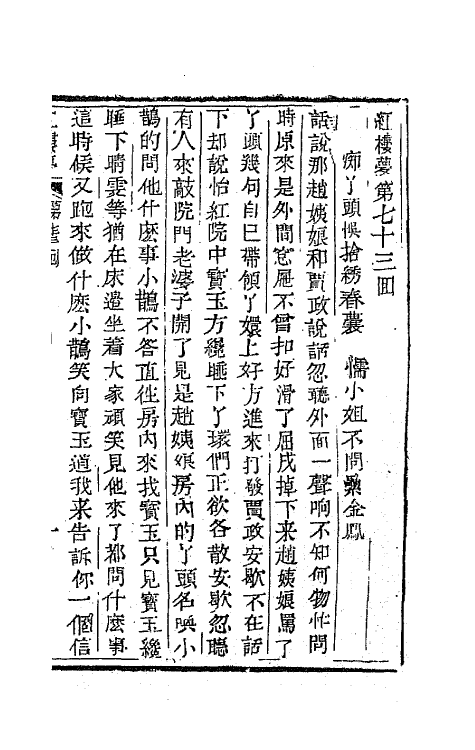 紅樓夢第七十三回
痴丫頭悞拾綉春囊　懦小姐不問纍金鳳
話說那趙姨娘和賈政說話忽聽外面一聲响不知何物忙問
時原來是外間窓屜不曾扣好滑了屈戌掉下來趙姨娘罵了
丫頭幾句自已帶領丫嬛上好方進來打發賈政安歇不在話
下却說怡紅院中寳玉方纔睡下丫環們正欲各散安歇忽聽
有人來敲院門老婆子開了見是趙姨娘房內的丫頭名喚小
鵲的問他什麽事小鵲不答直徃房內來找寳玉只見寳玉纔
睡下晴雲等猶在床邉坐着大家頑笑見他來了都問什麽事
這時候又跑來做什麽小鵲笑向寳玉道我來告訴你一個信